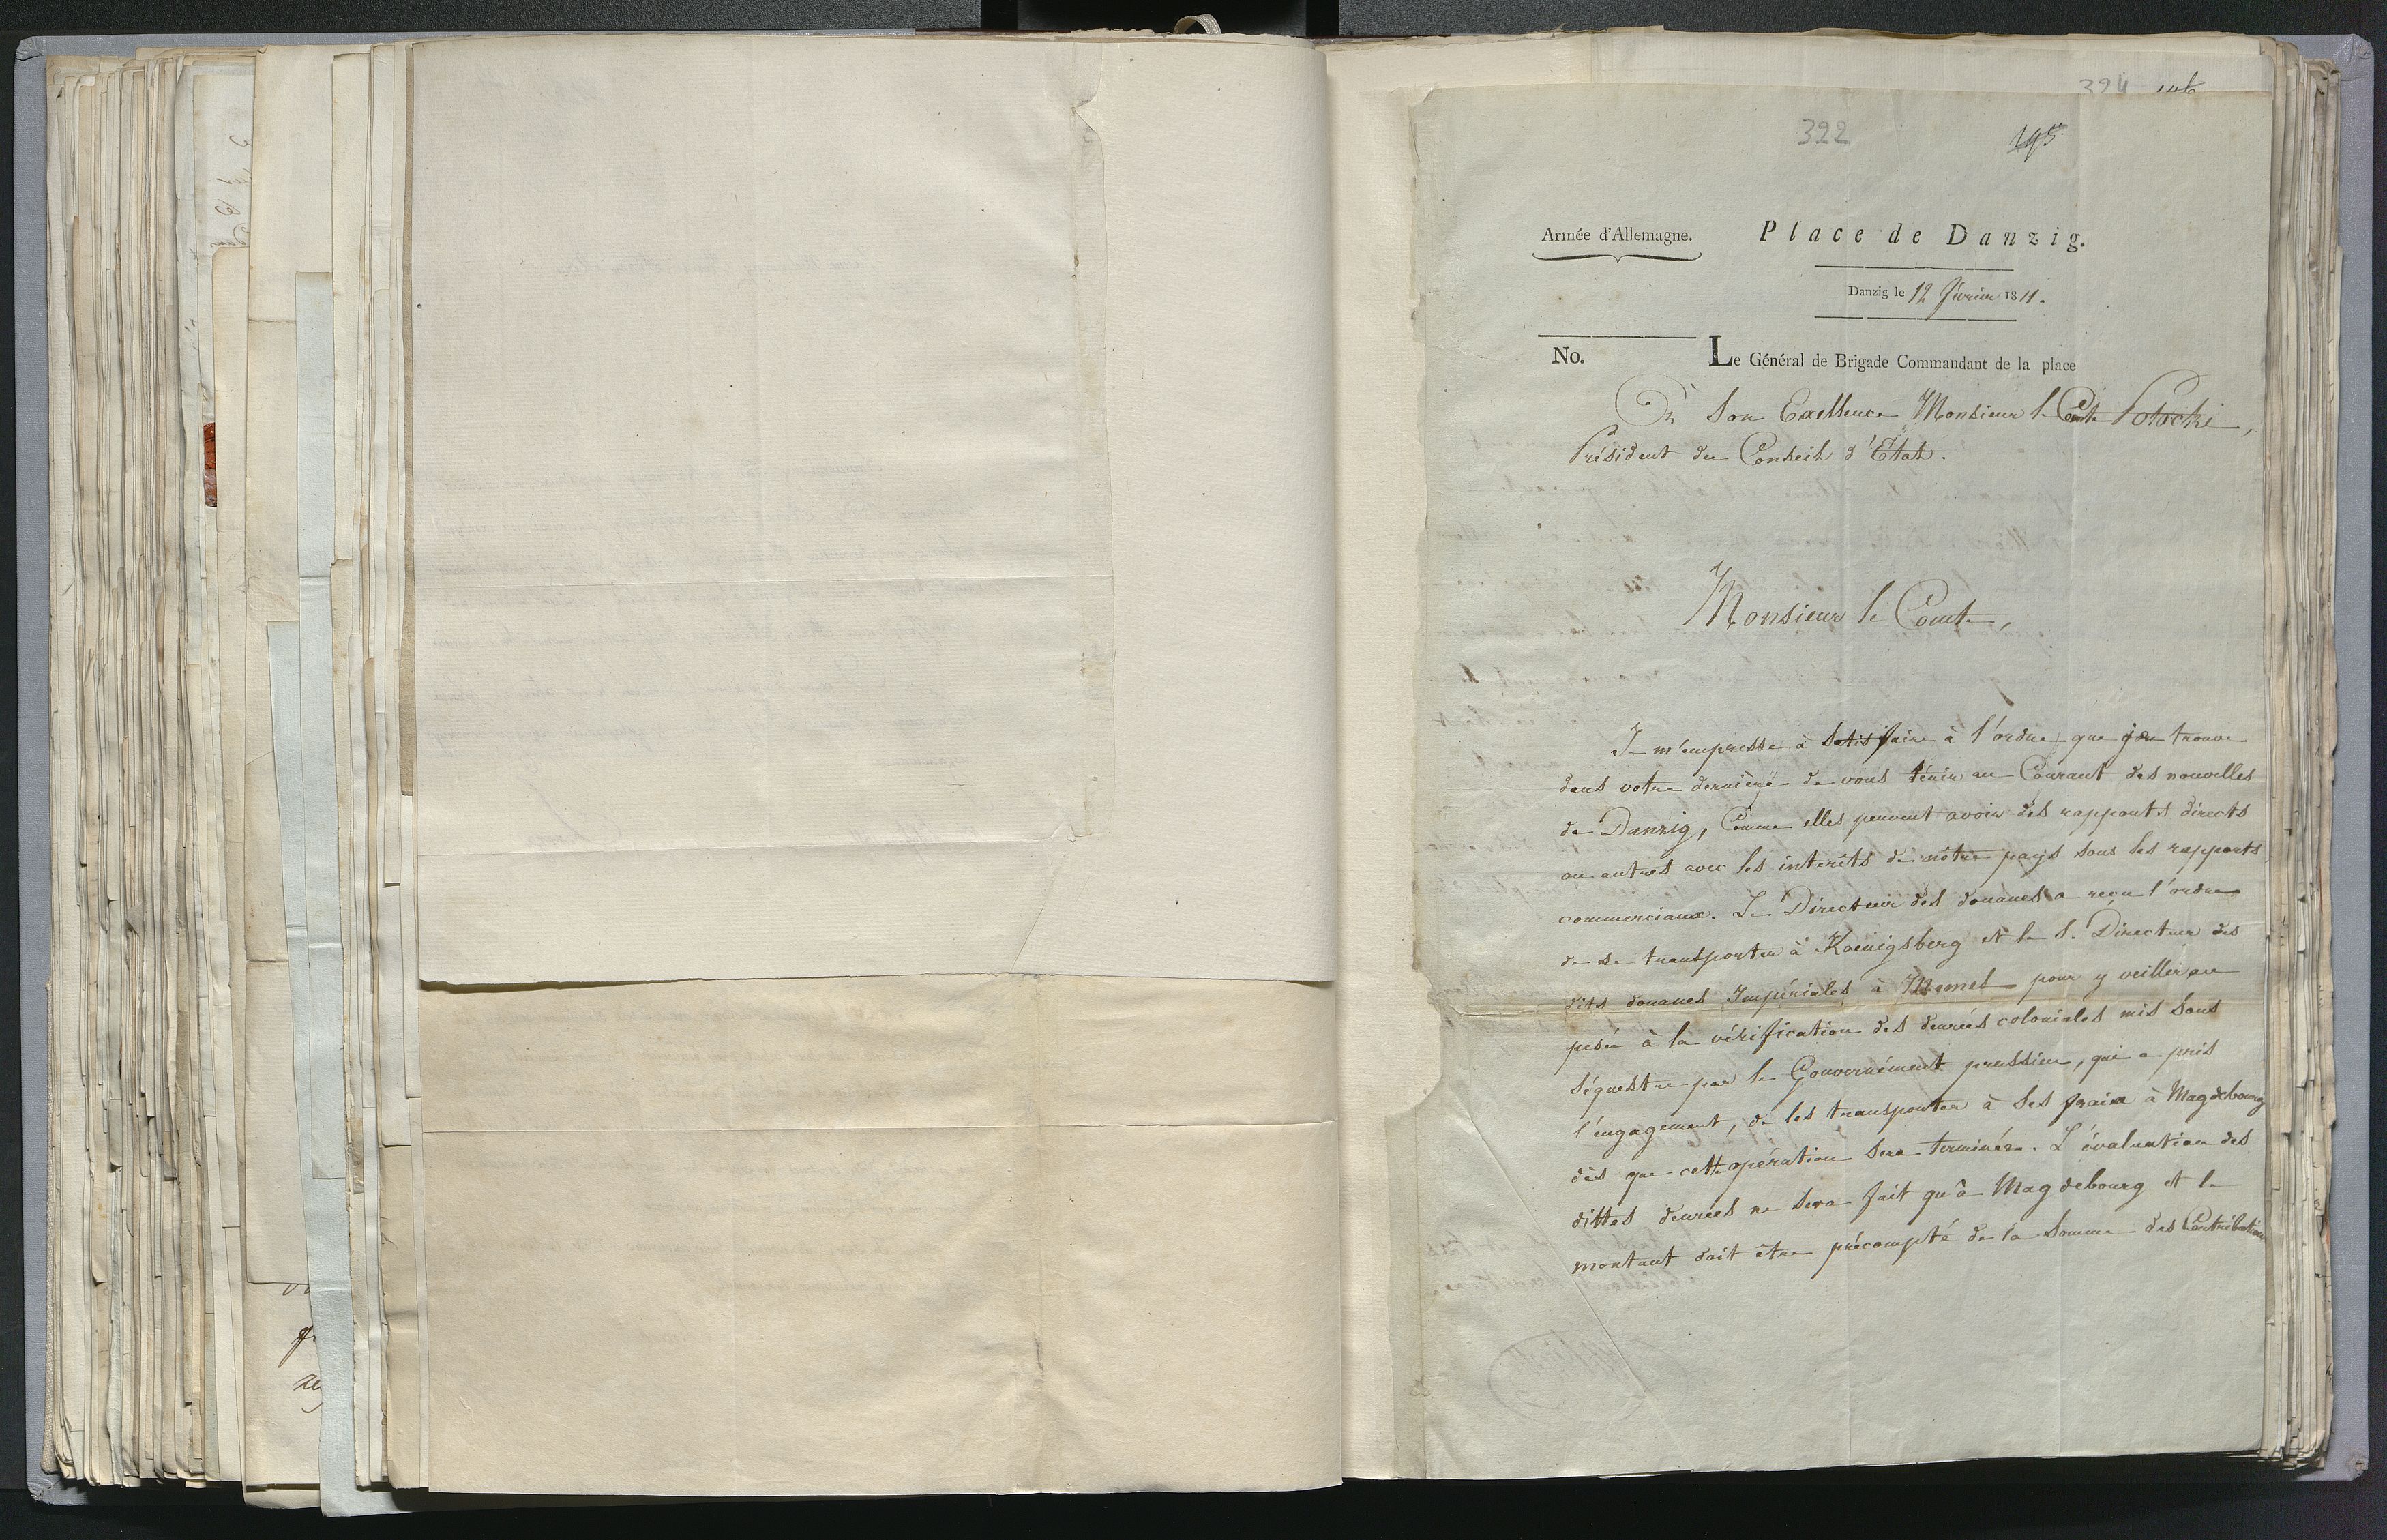 394 146
322 195
Armée d'Allemagne. Place de Danzig.
Danzig le 12 février 1811.
No. Le Général de Brigade Commandant de la place
À Son Exellence Monsieur le Comte Potocki,
Président du Conseil d'Etat.
Monsieur le Comte,
Je m'empresse à satisfaire à l'ordre que je trouve
dans votre dernière de vous ténir au Courant des nouvelles
de Danzig, Comme elles peuvent avoir des rapports directs
ou autres avec les interêts de nôtre pays sous les rapports
commerciaux. Le Directeur des douanes a reçu l'ordre
de se transporter à Koenigsberg et le S. Directeur des
dits douanes Impériales à Memel pour y veiller au
peser à la vérification des denrées coloniales mis sous
séquestre par le Gouvernément prussien, qui a pris
l'engagement, de les transporter à ses fraix à Magdebourg
dès que cette opération sera terminée. L'évaluation des
dittes denrées ne sera fait qu'à Magdebourg et le
montant doit être précompté de la somme des Contributions